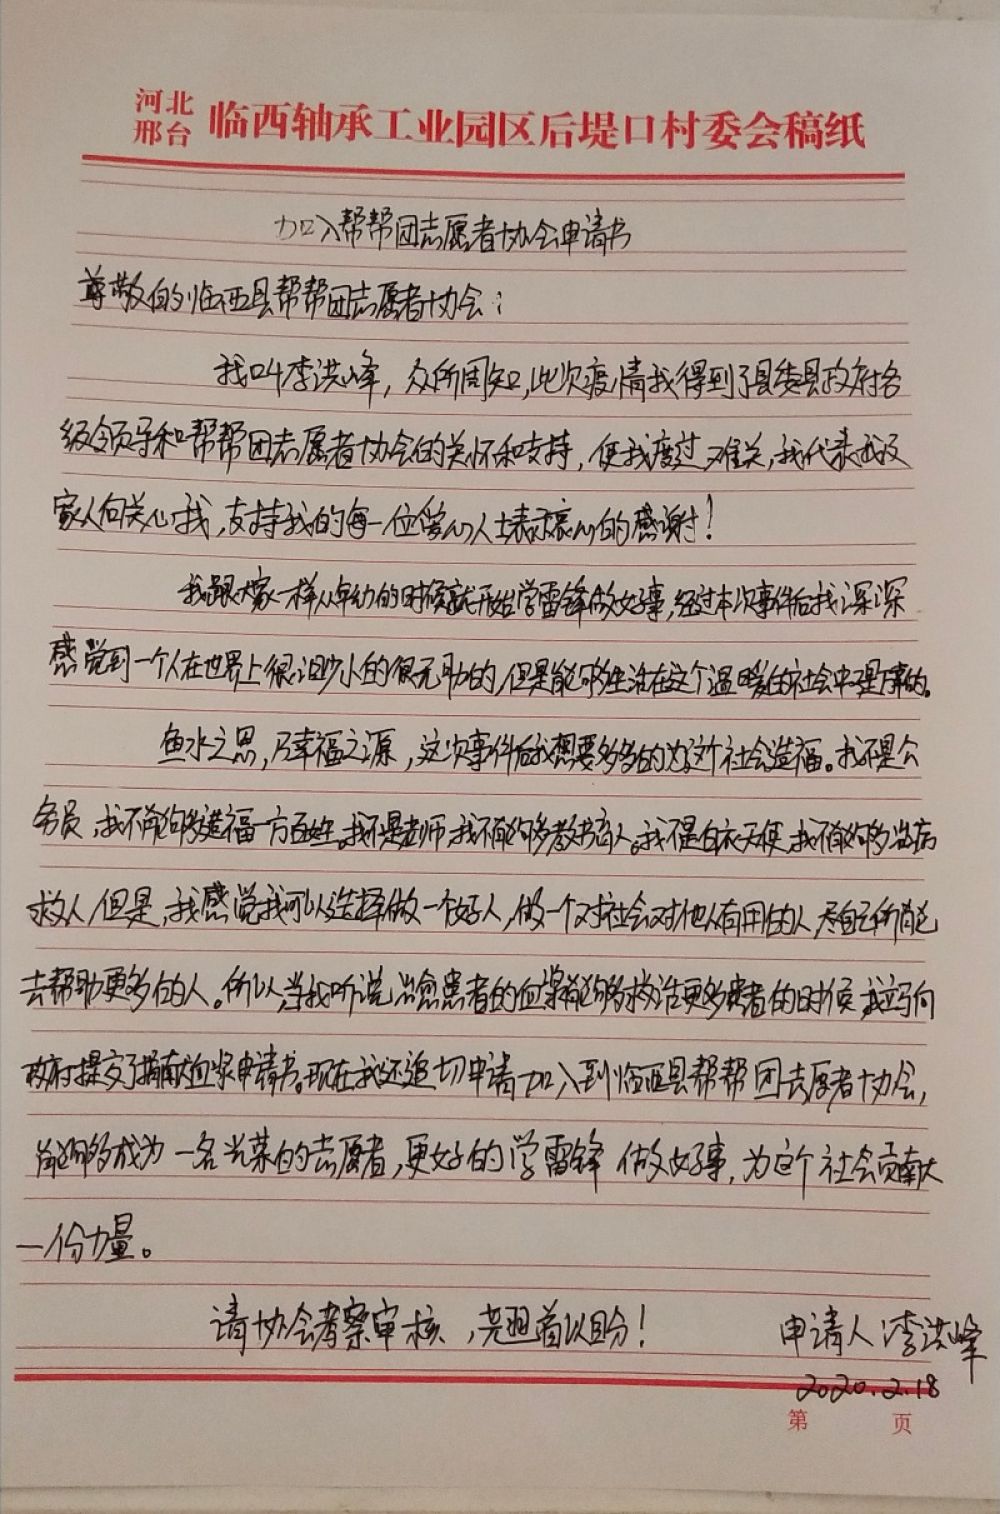 河北
邢台 临西轴承工业园区后堤口村委会稿纸
加入帮帮团志愿者协会申请书
尊敬的临西县帮帮团志愿者协会：
我叫李洪峰，众所周知，此次疫情我得到了县委县政府各
级领导和帮帮团志愿者协会的关怀和支持，使我度过难关，我代表我及
家人向关心我，支持我的每一位爱心人士表示衷心的感谢！
我跟大家一样从年幼的时候就开始学雷锋做好事，经过本次事件后我深深
感觉到一个人在世界上很渺小的很无助的，但是能够生活在这个温暖的社会中是幸的。
鱼水之恩，乃幸福之源，这次事件后我想要多多的为这个社会造福。我不是公
务员，我不能够造福一方百姓。我不是老师，我不能够教书育人。我不是白衣天使，我不能够治病
救人，但是，我感觉我可以选择做一个好人，做一个对社会对他人有用的人，尽自己所能
去帮助更多的人。所以当我听说治愈患者的血浆能够救治更多患者的时候，我立马向
政府提交了捐献血浆申请书。现在我还迫切申请加入到临西县帮帮团志愿者协会，
能够成为一名光荣的志愿者，更好的学雷锋做好事，为这个社会贡献
一份力量。
请协会考察审核，
申请人：李洪峰
2020.2.18
第 页